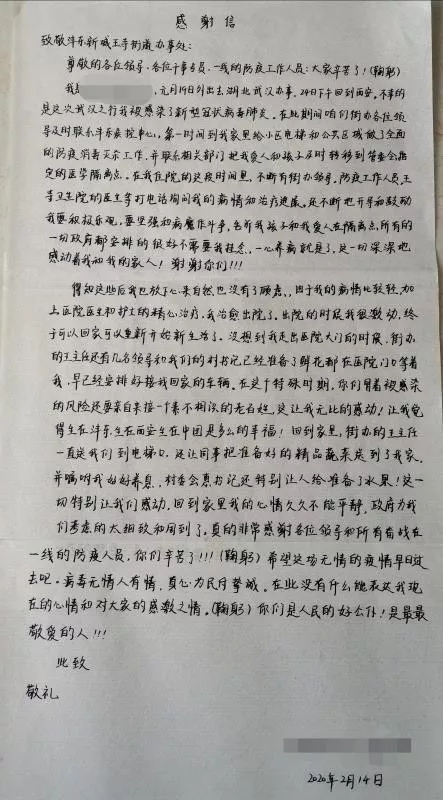 感谢信
致敬沣东新城王寺街道办事处：
尊敬的各位领导、各位干事专员、一线的防疫工作人员：大家辛苦了！（鞠躬）
我是 ，元月19日外出去湖北武汉办事，24日下午回到西安。不幸的
是这次武汉之行我被感染了新型冠状病毒肺炎。在此期间咱们街办各位领
导及时联系沣东疾控中心，第一时间到我家里给小区电梯和公共区域做了全面
的防疫消毒灭杀工作，并联系相关部门把我爱人和孩子及时转移到管委会指
定的医学隔离点。在我住院的这段时间里，不断有街办领导、防疫工作人员、王
寺卫生院的医生等打电话询问我的病情和治疗进展。还不断地开导和鼓励
我要积极乐观，要坚强和病魔作斗争，告诉我孩子和我爱人在隔离点所有的
一切政府都安排的很好不需要我挂念，一心养病就是了。这一切深深地
感动着我和我的家人！谢谢你们!!!
得知这些后我也放了心来自然也没有了顾虑，由于我的病情比较轻，加
上医院医生和护士的精心治疗，我治愈出院了。出院的时候我很激动，终
于可以回家可以重新开始新生活了。没想到我走出医院大门的时候，街办
的王主任还有几名领导和我们的村书记已经准备了鲜花都在医院门口等着
我，早已经安排好接我回家的车辆。在这个特殊时期，你们冒着被感染
的风险还要亲自来接一个素不相识的老百姓，这让我无比的感动！让我觉
得生在沣东，生在西安生在中国是多么的幸福！回到家里，街办的王主任
一直送我们到电梯口，还让同事把准备好的精品蔬菜送到了我家，
并嘱咐我好好养息，村委会惠书记还特别让人给准备了水果！这一
切特别让我们感动，回到家里我的心情久久不能平静，政府为我
们考虑的太细致和周到了。真的非常感谢各位领导和所有奋战在
一线的防疫人员，你们辛苦了!!!（鞠躬）希望这场无情的疫情早日过
去吧。病毒无情人有情，真心为民付挚诚。在此没有什么能表达我现
在的心情和对大家的感激之情。（鞠躬）你们是人民的好公仆！是最最
敬爱的人!!!
此致
敬礼
2020年2月14日